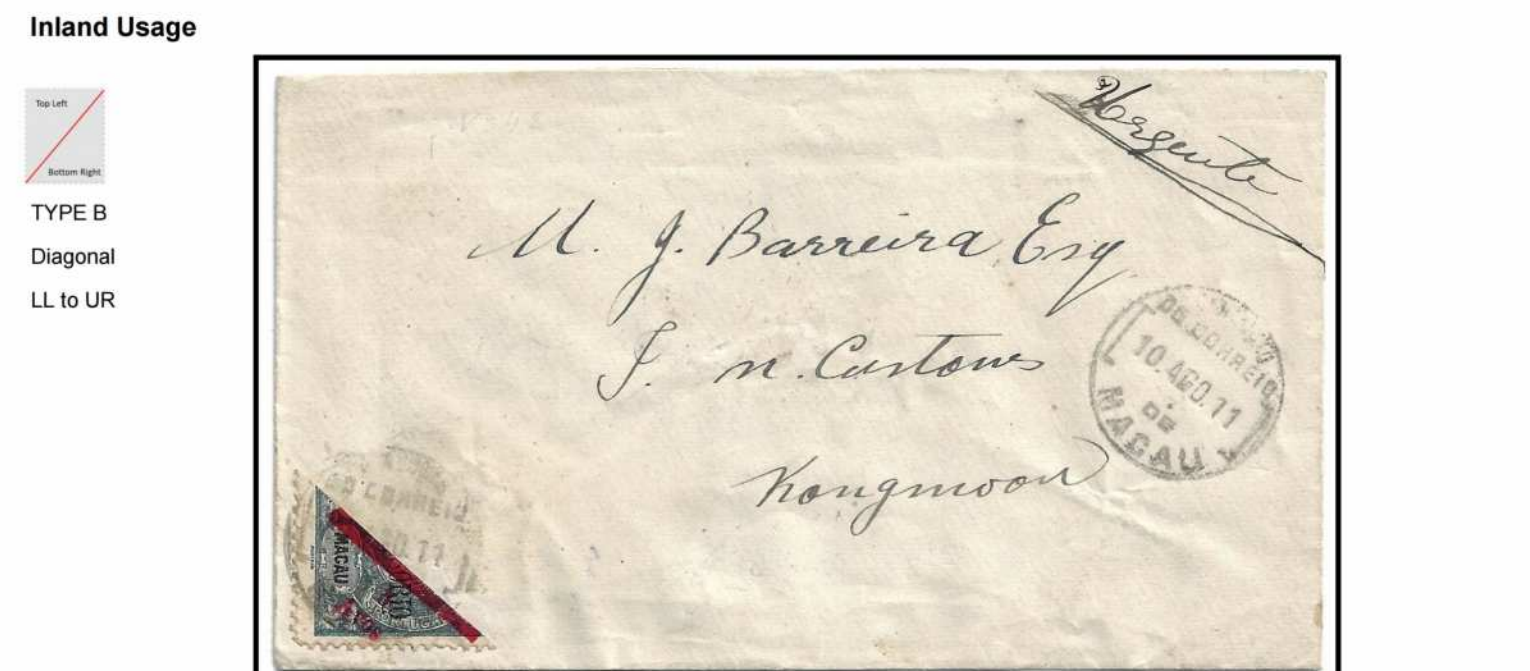 Inland Usage
Top Left
Bottom Right
TYPE B
Diagonal
LL to UR
Urgente
M. J. Barreira Esq
I. M. Customs
Kongmoon
DO CORREIO
10.AGO.11
DE
MACAU
DO CORREIO
11
MACAU